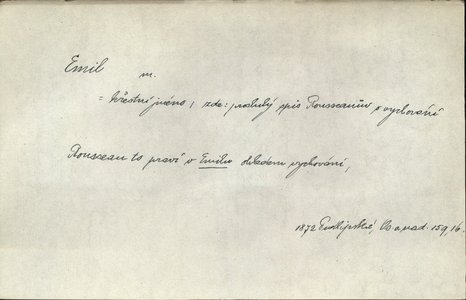 Emil
m.
= křestní jméno; zde: proslulý spis Rousseauův o vychování
Rousseau to praví v Emilu ohledem vychování,
1872 Ob a nad. 159, 16.